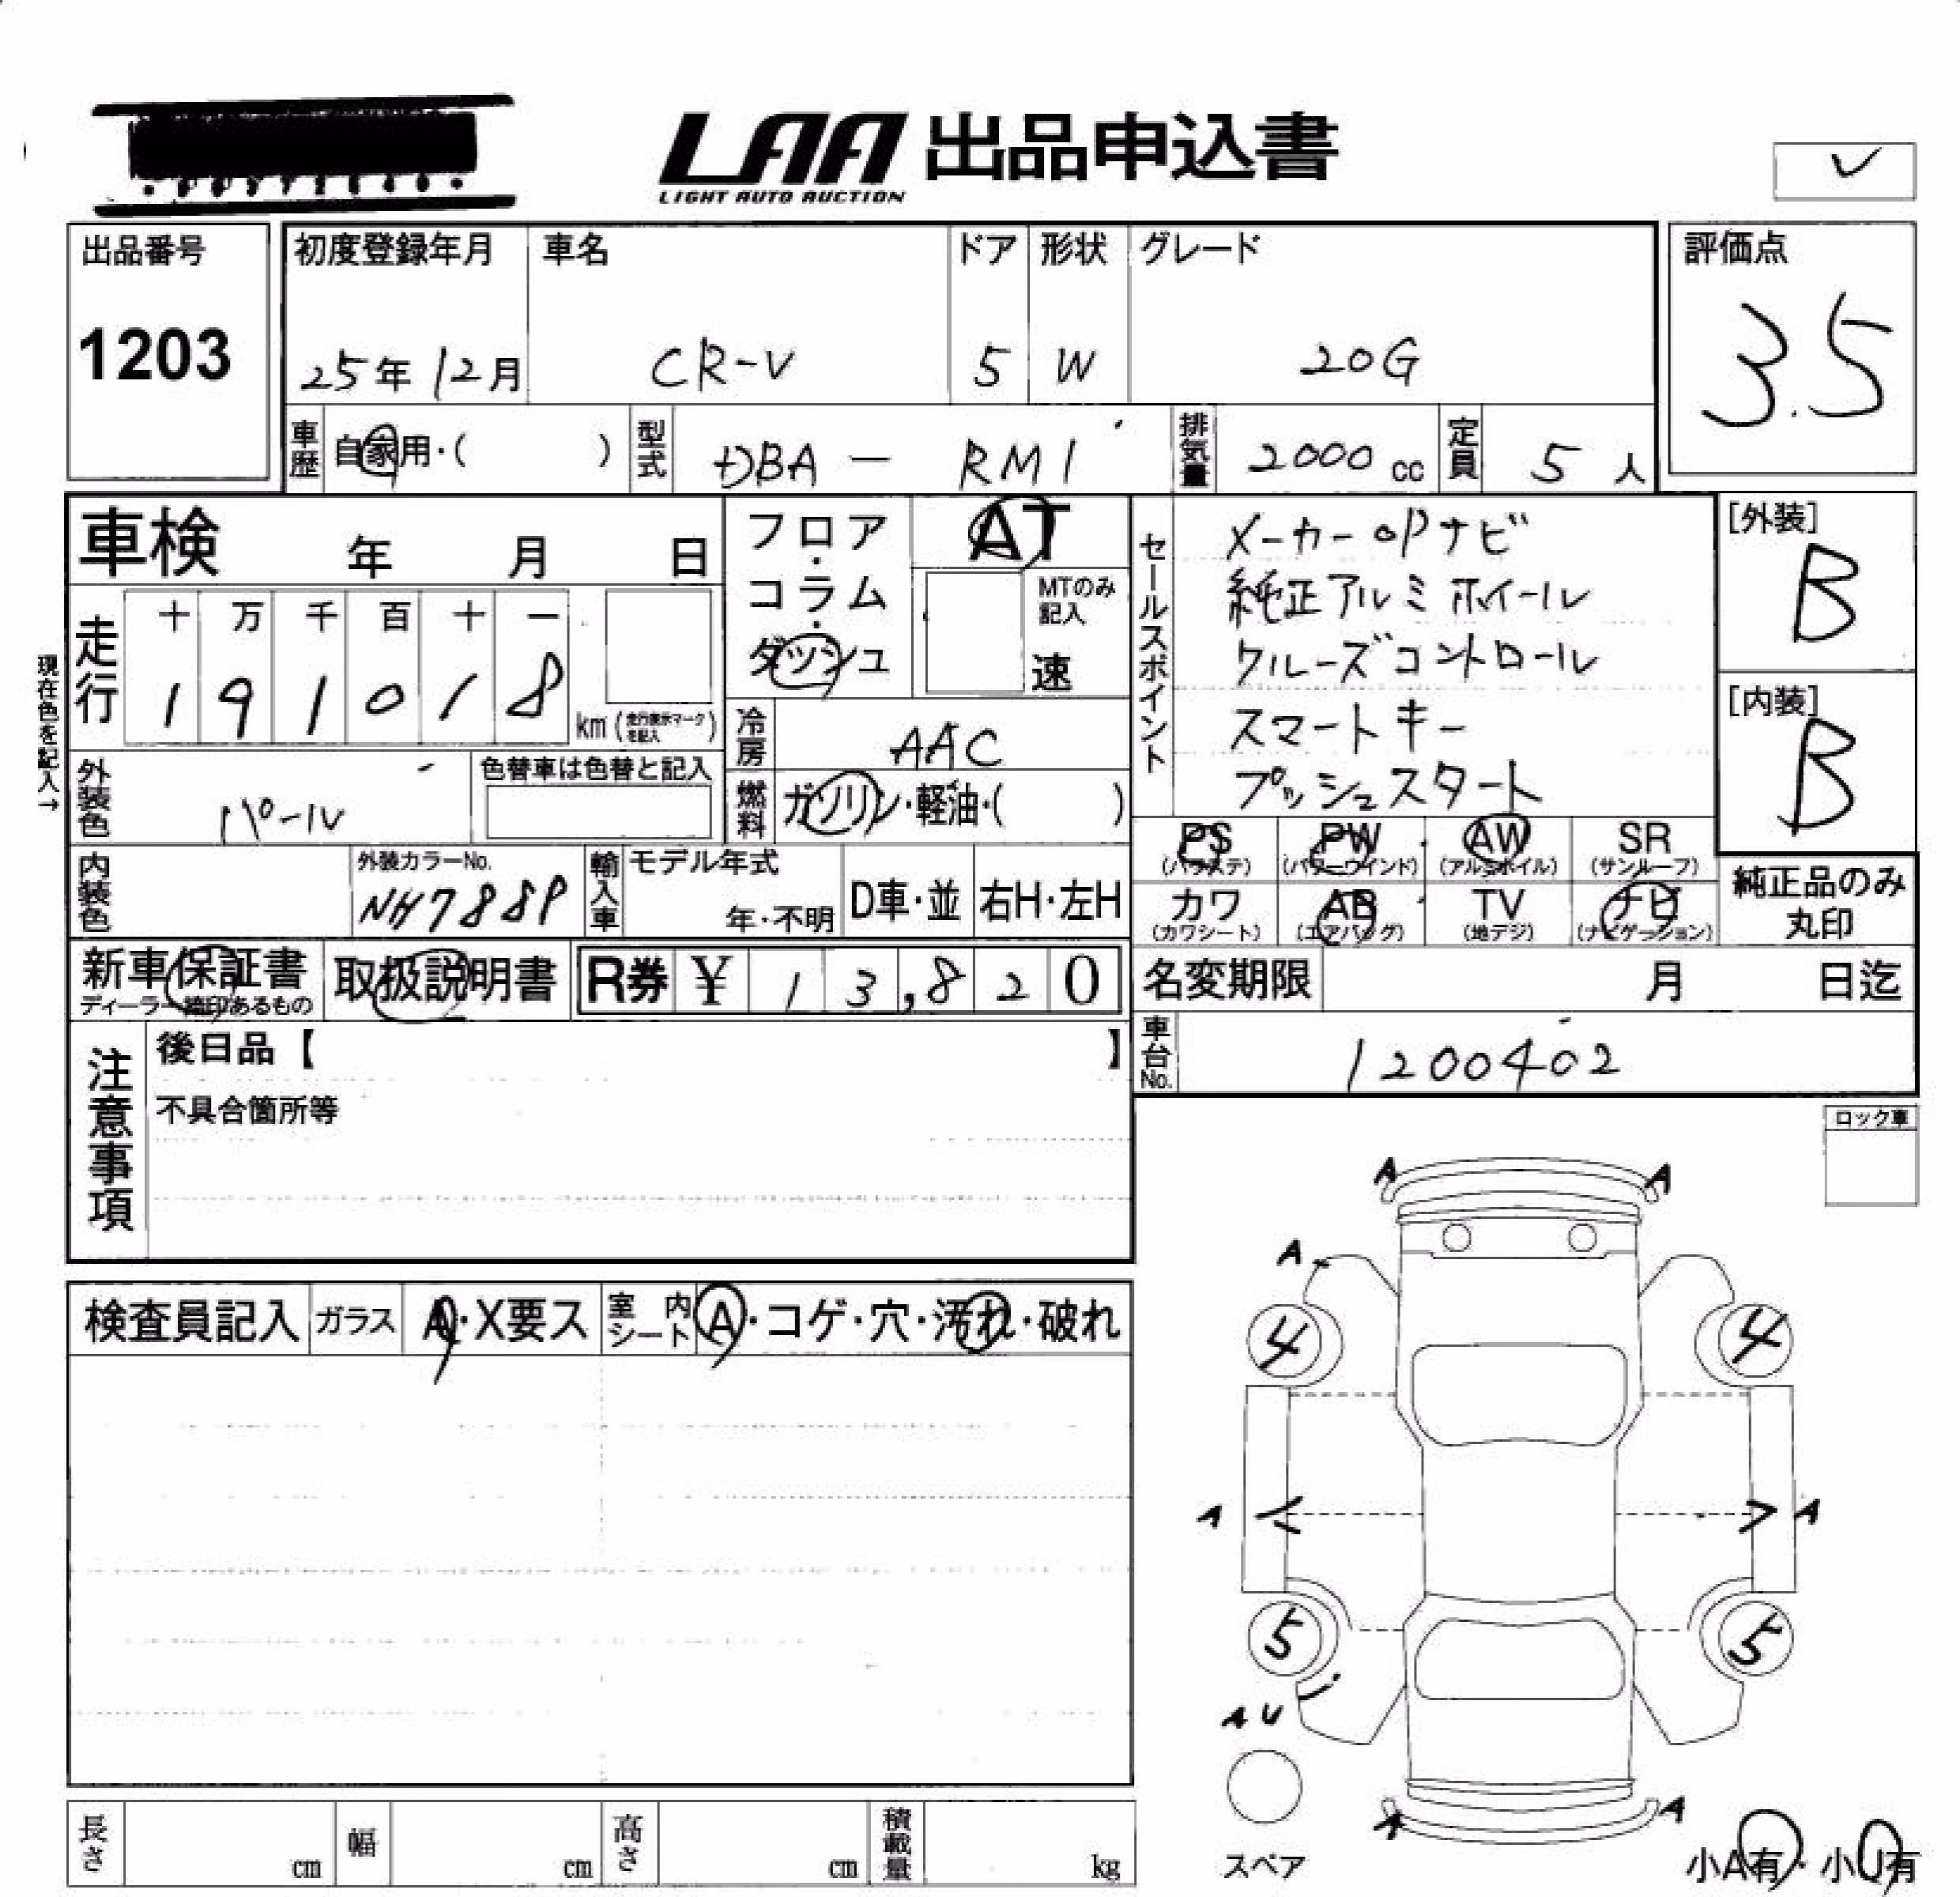 LAA 出品申込書
LIGHT AUTO AUCTION
出品番号
1203
初度登録年月
25年 12月
車名
CR-V
ドア
5
形状
W
グレード
20G
評価点
3.5
車歴
自家用・( )
型式
DBA - RM1
排気量
2000 cc
定員
5 人
車検 年 月 日
フロア・コラム・ダッシュ
AT
MTのみ記入
速
現在色を記入→
走行
十 万 千 百 十 一
1 9 1 0 1 8
km (走行表示マークを記入)
冷房
AAC
外装色
パール
色替車は色替と記入
燃料
ガソリン・軽油・( )
セールスポイント
メーカーOPナビ
純正アルミホイール
クルーズコントロール
スマートキー
プッシュスタート
[外装]
B
[内装]
B
PS (パワステ)
PW (パワーウインド)
AW (アルミホイル)
SR (サンルーフ)
カワ (カワシート)
AB (エアバッグ)
TV (地デジ)
ナビ (ナビゲーション)
純正品のみ
丸印
内装色
外装カラーNo.
NH788P
輸入車
モデル年式
年・不明
D車・並
右H・左H
新車保証書
ディーラー捺印あるもの
取扱説明書
R券 ¥ 13,820
名変期限 月 日迄
車台No.
1200402
注意事項
後日品【 】
不具合箇所等
ロック車
検査員記入
ガラス A・X要ス
室内シート A・コゲ・穴・汚れ・破れ
A A
A
4 4
A A
5 5
AU
A A
スペア
小A有・小U有
長さ cm
幅 cm
高さ cm
積載量 kg